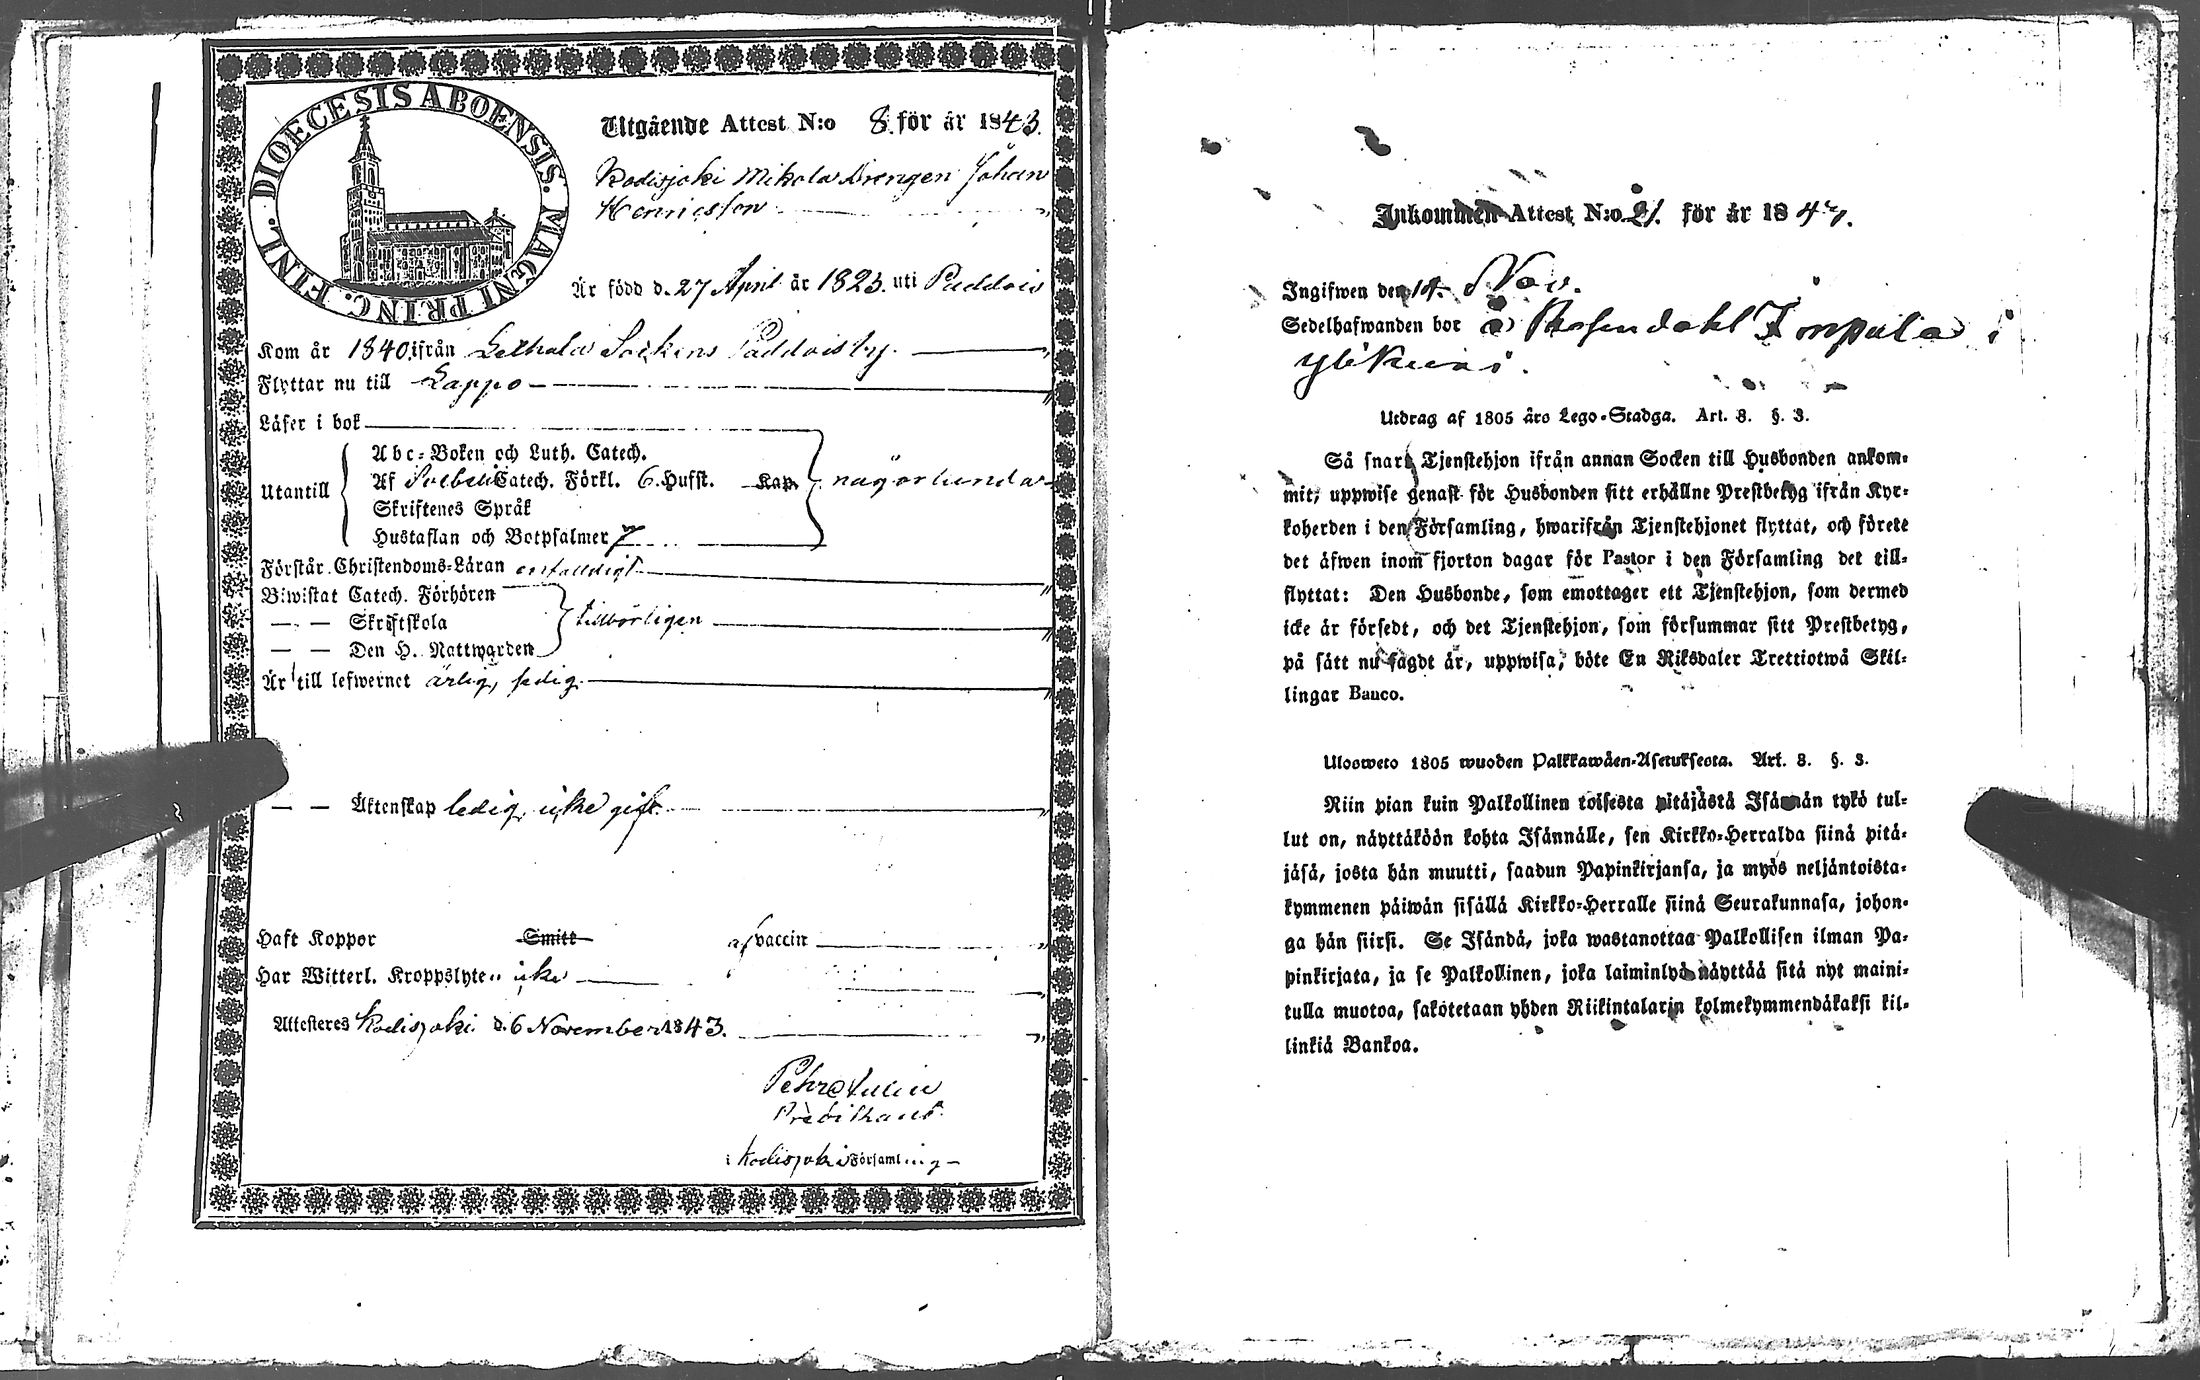 DIOECESIS ABOENSIS. MAGNI PRINC. FINL.
Utgående Attest N:o 8. för år 1843.
Kodisjoki Mikola Drengen Johan
Henricsson
Är född d. 27 April år 1823. uti Paddois
Kom år 1840. ifrån Lethala Sockens Paddois by.
Flyttar nu till Lappo
Läser i bok
Utantill
Abc-Boken och Luth. Catech.
Af Svebelii Catech. Förkl. 6. Hufst. Kap.
någorlunda
Skriftenes Språk
Hustaflan och Botpsalmer 7
Förstår Christendoms-Läran enfaldigt
Biwistat Catech. Förhören
— — Skriftskola
tillbörligen
— — Den H. Nattwarden
Är till lefwernet ärlig, sedig.
— — Äktenskap ledig, icke gift.
Haft Koppor Smitt af vaccin
Har Witterl. Kroppslyten icke
Attesteras Kodisjoki d. 6 November 1843.
Pehr
Predikant
i Kodisjoki Församling
Inkommen Attest N:o 21. för år 184
Ingifwen den 14. Nov.
Sedelhafwanden bor å Rosendahl Impola i
Ylikunni.
Utdrag af 1805 års Lego-Stadga. Art. 8. §. 3.
Så snart Tjenstehjon ifrån annan Socken till Husbonden ankom-
mit, uppwise genast för Husbonden sitt erhållne Prestbetyg ifrån Kyr-
koherden i den Församling, hwarifrån Tjenstehjonet flyttat, och förete
det äfwen inom fjorton dagar för Pastor i den Församling det till-
flyttat: Den Husbonde, som emottager ett Tjenstehjon, som dermed
icke är försedt, och det Tjenstehjon, som försummar sitt Prestbetyg,
på sätt nu sagdt är, uppwisa, böte En Riksdaler Trettiotwå Skil-
lingar Banco.
Ulosweto 1805 wuoden Palkkawäen-Asetuksesta. Art. 8. §. 3.
Niin pian kuin Palkollinen toisesta pitäjästä Isännän tykö tul-
lut on, näyttäköön kohta Isännälle, sen Kirkko-Herralda siinä pitä-
jäsä, josta hän muutti, saadun Papinkirjansa, ja myös neljäntoista-
kymmenen päiwän sisällä Kirkko-Herralle siinä Seurakunnasa, johon-
ga hän siirsi. Se Isändä, joka wastanottaa Palkollisen ilman Pa-
pinkirjata, ja se Palkollinen, joka laiminlyö näyttää sitä nyt maini-
tulla muotoa, sakotetaan yhden Riikintalarin kolmekymmendäkaksi kil-
linkiä Bankoa.